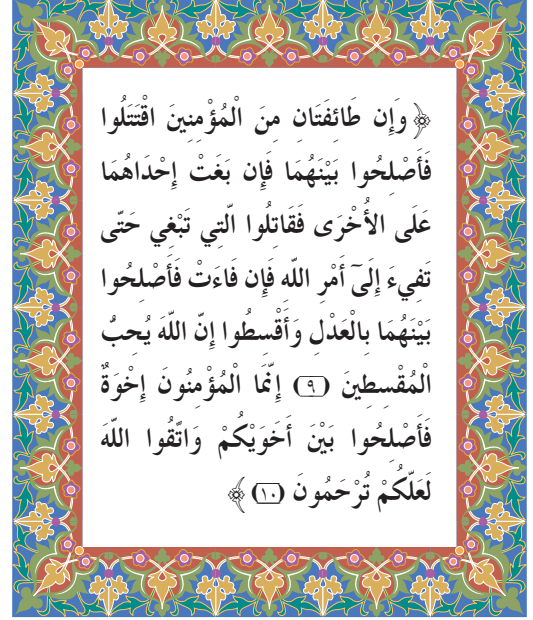 ﴿ وَإِن طَائِفَتَانِ مِنَ الْمُؤْمِنِينَ اقْتَتَلُوا
فَأَصْلِحُوا بَيْنَهُمَا فَإِن بَغَتْ إِحْدَاهُمَا
عَلَى الْأُخْرَى فَقَاتِلُوا الَّتِي تَبْغِي حَتَّى
تَفِيءَ إِلَىٓ أَمْرِ اللَّهِ فَإِن فَاءَتْ فَأَصْلِحُوا
بَيْنَهُمَا بِالْعَدْلِ وَأَقْسِطُوا إِنَّ اللَّهَ يُحِبُّ
الْمُقْسِطِينَ (٩) إِنَّمَا الْمُؤْمِنُونَ إِخْوَةٌ
فَأَصْلِحُوا بَيْنَ أَخَوَيْكُمْ وَاتَّقُوا اللَّهَ
لَعَلَّكُمْ تُرْحَمُونَ (١٠) ﴾